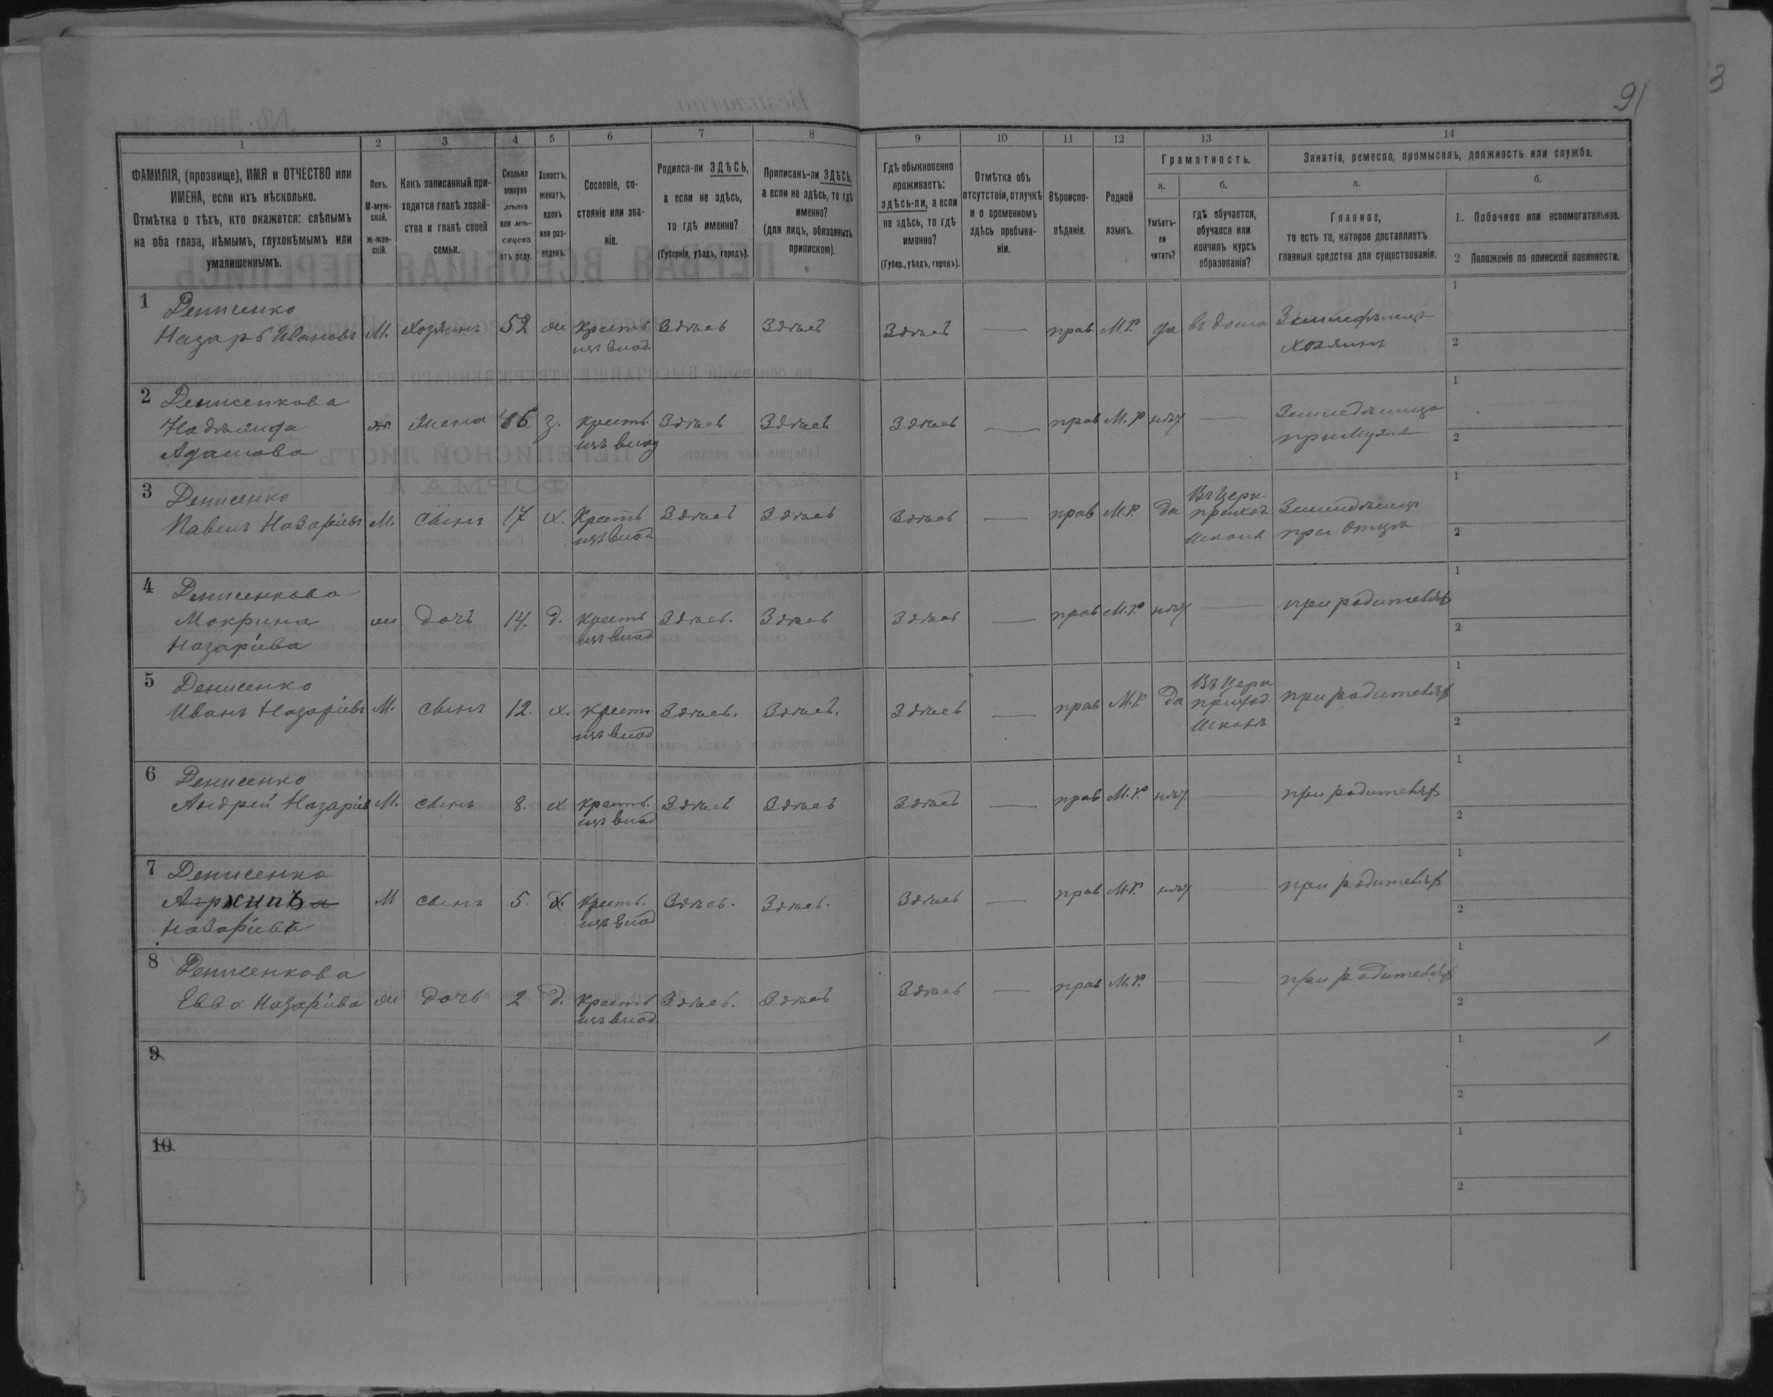 91
1 2 3 4 5 6 7 8 9 10 11 12 13 14
ФАМИЛІЯ, (прозвище), ИМЯ и ОТЧЕСТВО или
ИМЕНА, если ихъ нѣсколько.
Отмѣтка о тѣхъ, кто окажется: слѣпымъ
на оба глаза, нѣмымъ, глухонѣмымъ или
умалишеннымъ.
Полъ.
М-муж-
ской.
ж-жен-
скій.
Какъ записанный при-
ходится главѣ хозяй-
ства и главѣ своей
семьи.
Сколько
минуло
лѣтъ
или мѣ-
сяцевъ
отъ роду.
Холостъ,
женатъ,
вдовъ
или раз-
веденъ.
Сословіе, со-
стояніе или зва-
ніе.
Родился-ли ЗДѢСЬ,
а если не здѣсь,
то гдѣ именно?
(Губернія, уѣздъ, городъ).
Приписанъ-ли ЗДѢСЬ,
а если не здѣсь, то гдѣ
именно?
(для лицъ, обязанныхъ
припискою).
Гдѣ обыкновенно
проживаетъ:
здѣсь-ли, а если
не здѣсь, то гдѣ
именно?
(Губер., уѣздъ, городъ).
Отмѣтка объ
отсутствіи, отлучкѣ
и о временномъ
здѣсь пребыва-
ніи.
Вѣроиспо-
вѣданіе.
Родной
языкъ.
Грамотность.
а.
Умѣетъ-
ли
читать?
б.
гдѣ обучается,
обучался или
кончилъ курсъ
образованія?
Занятія, ремесло, промыселъ, должность или служба.
а.
Главное,
то есть то, которое доставляетъ
главныя средства для существованія.
б.
1. Побочное или вспомогательное.
2 Положеніе по воинской повинности.
1 Денисенко
Назаръ Ивановъ М. хозяинъ 52 ж крест. Здѣсь Здѣсь Здѣсь — прав М.Р. да въ дома Земледѣлецъ 1
изъ влад. хозяинъ 2
2 Денисенкова 1
Адамова ж жена 46 з. крест. Здѣсь Здѣсь Здѣсь — прав М.Р. нѣт —
изъ влад при мужѣ 2
3 Денисенко Въ церк 1
Павелъ Назаріевъ М. сынъ 17 х. Крест. Здѣсь Здѣсь Здѣсь — прав М.Р. да приход Земледѣлецъ
изъ влад школѣ при отцѣ 2
4 Денисенкова 1
Мокрина ж дочь 14. д. крест Здѣсь. Здѣсь Здѣсь — прав М.Р. нѣт — при родителяхъ
Назаріева изъ влад 2
5 Денисенко Въ церк 1
Иванъ Назаріевъ М. сынъ 12. х. крест. Здѣсь. Здѣсь. Здѣсь — прав М.Р. да приход. при родителяхъ
изъ влад школѣ 2
6 Денисенко 1
Андрей Назаріев М. сынъ 8. х крест. Здѣсь Здѣсь Здѣсь — прав М.Р. нѣт — при родителяхъ
изъ влад 2
7 Денисенко 1
Архипъ М сынъ 5. х. крест. Здѣсь. Здѣсь. Здѣсь — прав М.Р. нѣт — при родителяхъ
Назаріева изъ влад 2
8 Денисенкова 1
Евва Назаріева ж дочь 2 д. крест Здѣсь. Здѣсь Здѣсь — прав М.Р. — — при родителяхъ
изъ влад. 2
9 1
2
10 1
2